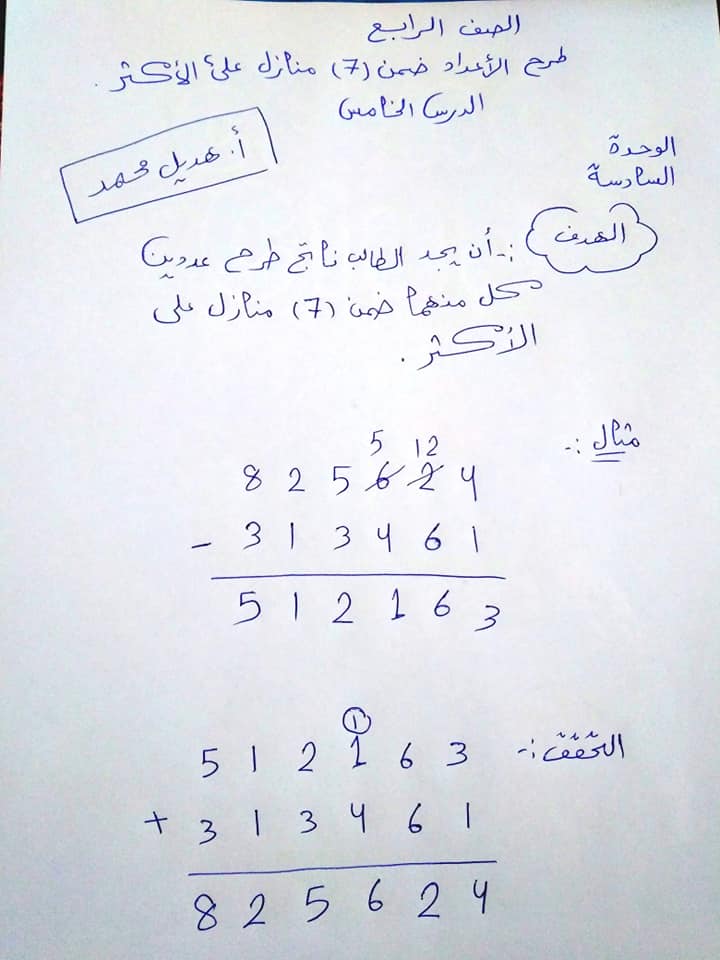 الصف الرابع
طرح الأعداد ضمن (7) منازل على الأكثر.
الدرس الخامس
أ. هديل محمد
الوحدة
السادسة
الهدف :- أن يجد الطالب ناتج طرح عددين
كل منهما ضمن (7) منازل على
الأكثر.
مثال :-
5 12
8 2 5 6 2 4
- 3 1 3 4 6 1
5 1 2 1 6 3
التحقق :-
1
5 1 2 1 6 3
+ 3 1 3 4 6 1
8 2 5 6 2 4